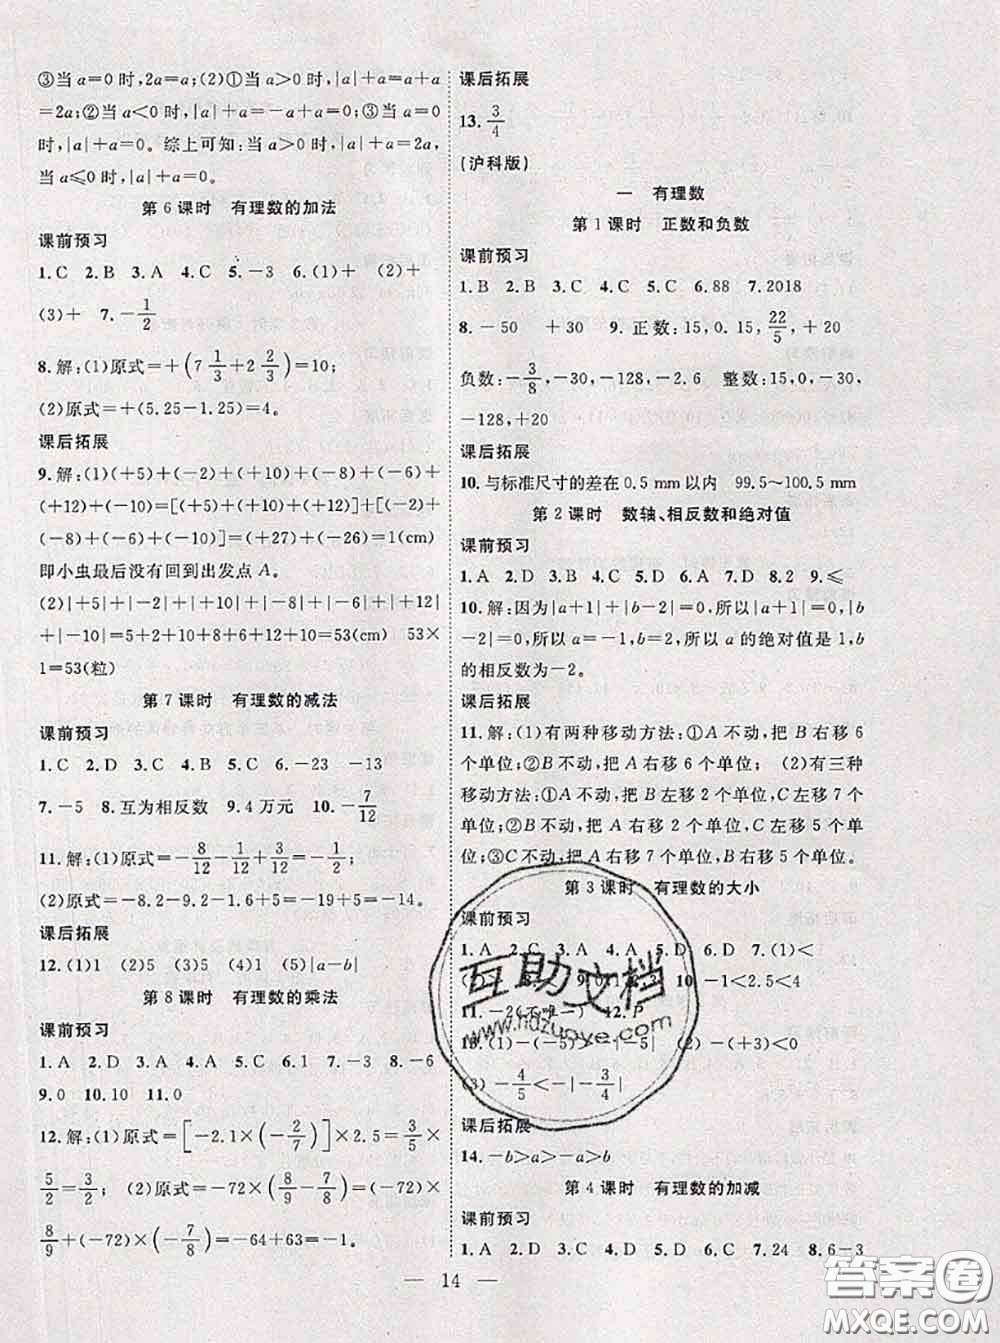 ③当 a=0 时,2a=a;(2)①当 a>0 时,|a|+a=a+a
=2a;②当 a<0 时,|a|+a=-a+a=0;③当 a=0 时,
|a|+a=0.综上可知:当 a>0 时,|a|+a=2a,
当 a≤0 时,|a|+a=0。
第 6 课时 有理数的加法
课前预习
1.C 2.B 3.A 4.C 5.-3 6.(1)+ (2)+
(3)+ 7.-1/2
8.解:(1)原式=+(7 1/3+2 2/3)=10;
(2)原式=+(5.25-1.25)=4。
课后拓展
9.解:(1)(+5)+(-2)+(+10)+(-8)+(-6)+
(+12)+(-10)=[(+5)+(+10)+(+12)]+[(-2)
+(-8)+(-6)+(-10)]=(+27)+(-26)=1(cm)
即小虫最后没有回到出发点 A。
(2)|+5|+|-2|+|+10|+|-8|+|-6|+|+12|
+|-10|=5+2+10+8+6+12+10=53(cm) 53×
1=53(粒)
第 7 课时 有理数的减法
课前预习
1.C 2.D 3.A 4.B 5.B 6.-23 -13
7.-5 8.互为相反数 9.4 万元 10.-7/12
11.解:(1)原式=-8/12-1/12+3/12=-1/2;
(2)原式=-8.2-9.1-6.7+10=-24+10=-14
课后拓展
12.(1)1 (2)5 (3)5 (4)5 (5)|a-b|
第 8 课时 有理数的乘法
课前预习
1.A 2.D 3.A 4.B 5.C 6.1 7.-3 8.-6
9.0 10.10 11.0
12.解:(1)原式=[-2.1×(-2/7)]×2.5=3/5×
5/2=3/2; (2)原式=-72×(8/9-7/8)=(-72)×
8/9+(-72)×(-7/8)=-64+63=-1。
课后拓展
13.3/4
(沪科版)
一 有理数
第 1 课时 正数和负数
课前预习
1.B 2.B 3.C 4.C 5.C 6.88 7.2018
8.-50 +30 9.正数:15,0.15,22/5,+20
负数:-3/8,-30,-128,-2.6 整数:15,0,-30,
-128,+20
课后拓展
10.与标准尺寸的差在0.5 mm以内 99.5~100.5 mm
第 2 课时 数轴、相反数和绝对值
课前预习
1.A 2.D 3.B 4.C 5.D 6.A 7.D 8.2 9.≤
10.解:因为|a+1|+|b-2|=0,所以|a+1|=0,|b
-2|=0,所以 a=-1,b=2,所以 a 的绝对值是 1,b
的相反数为-2。
课后拓展
11.解:(1)有两种移动方法:①A 不动,把 B 右移 6
个单位;②B 不动,把 A 右移 6 个单位; (2)有三种
移动方法:①A 不动,把 B 左移 2 个单位,C 左移 7 个
单位;②B 不动,把 A 右移 2 个单位,C 左移 5 个单
位;③C 不动,把 A 右移 7 个单位,B 右移 5 个单位。
第 3 课时 有理数的大小
课前预习
1.A 2.C 3.A 4.A 5.D 6.D 7.(1)<
10.-1<2.4<5
11.-2(不唯一) 12.P
13.(1)-(-5)>-|-5| (2)-(+3)<0
(3)-4/5<-|-3/4|
课后拓展
14.-b>a>-a>b
第 4 课时 有理数的加减
课前预习
1.A 2.D 3.C 4.A 5.C 6.C 7.24 8.6-3
14
互助文档
www.hdzuoye.com
答案圈
MXQE.COM